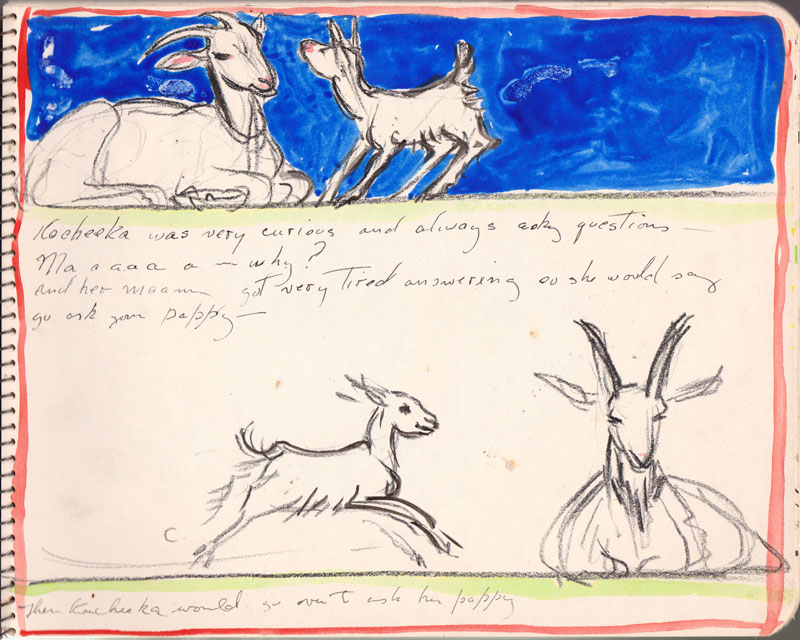 Kocheeka was very curious and always asking questions —
Ma a a a a a — why?
and her maama got very Tired answering so she would say
go ask your pappy —
C.
Then Kocheeka would go over to ask her pappy